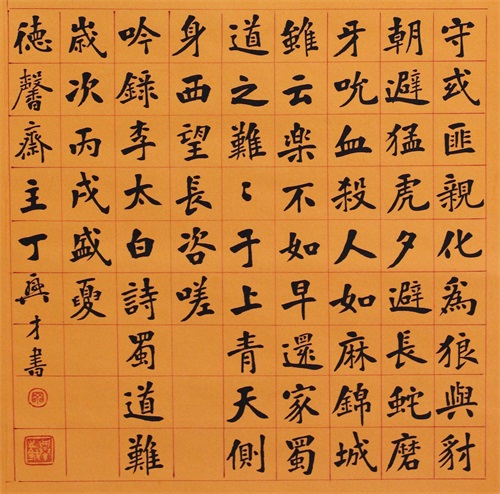 守或匪親化爲狼與豺
朝避猛虎夕避長蛇磨
牙吮血殺人如麻錦城
雖云楽不如早還家蜀
道之難〻于上青天側
身西望長咨嗟
吟錄李太白詩蜀道難
歲次丙戌盛夏
德馨齋主丁興才書